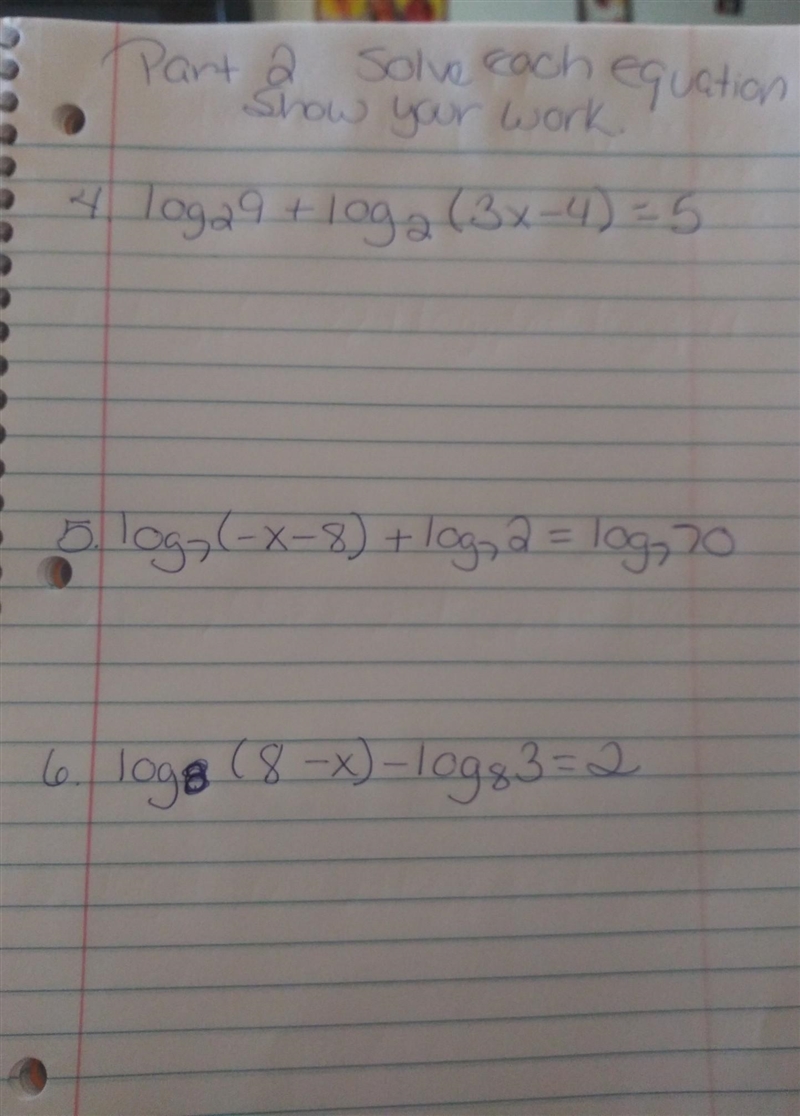 Part 2 Solve each equation
Show your work.
4. log₂9 + log₂(3x-4) = 5
5. log₇(-x-8) + log₇2 = log₇70
6. log₈(8-x) - log₈3 = 2